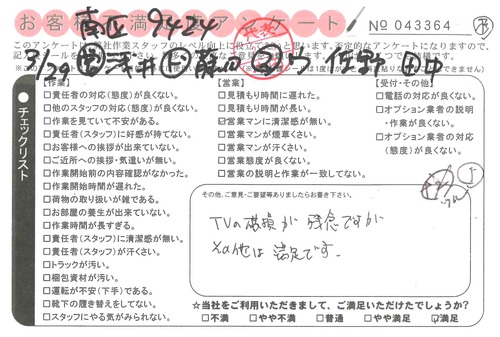 お客様満足アンケート
南区 9424
No 043364
このアンケートは
作業スタッフのレベル向上に役立て
否定的なアンケートになりますので、
3/29 浅井
佐野 田中
【作業】
□責任者の対応(態度)が良くない。
□他のスタッフの対応(態度)が良くない。
□作業を見ていて不安がある。
□責任者(スタッフ)に好感が持てない。
□お客様への挨拶が出来ていない。
□ご近所への挨拶・気遣いが無い。
□作業開始前の内容確認がなかった。
□作業開始時間が遅れた。
□荷物の取り扱いが雑である。
□お部屋の養生が出来ていない。
□作業時間が長すぎる。
□責任者(スタッフ)に清潔感が無い。
□責任者(スタッフ)が汗くさい。
□トラックが汚い。
□梱包資材が汚い。
□運転が不安(下手)である。
□靴下の履き替えをしてない。
□スタッフにやる気がみられない。
【営業】
□見積もり時間に遅れた。
□見積もり時間が長い。
□営業マンに清潔感が無い。
□営業マンが煙草くさい。
□営業マンが汗くさい。
□営業態度が良くない。
□営業の説明と作業が一致してない。
【受付・その他】
□電話の対応が良くない。
□オプション業者の説明・作業が良くない。
□オプション業者の対応(態度)が良くない。
●チェックリスト
その他、ご意見・ご要望等ありましたらお書き下さい。
TVの破損が残念ですが
その他は満足です。
☆当社をご利用いただきまして、ご満足いただけたでしょうか?
□不満 □やや不満 □普通 □やや満足 ☑満足